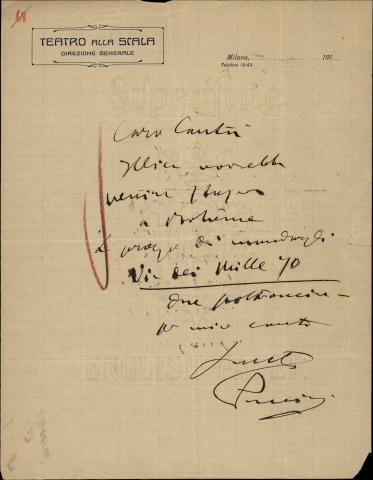 TEATRO ALLA SCALA
DIREZIONE GENERALE
Milano, 191
Telefono 10-63
Superfine
Caro Cantù
Illica vorrebbe
venire
a Bohème
la prego di mandargli
Via dei Mille 70
due poltroncine -
per mio conto
Puccini
ENGLISH